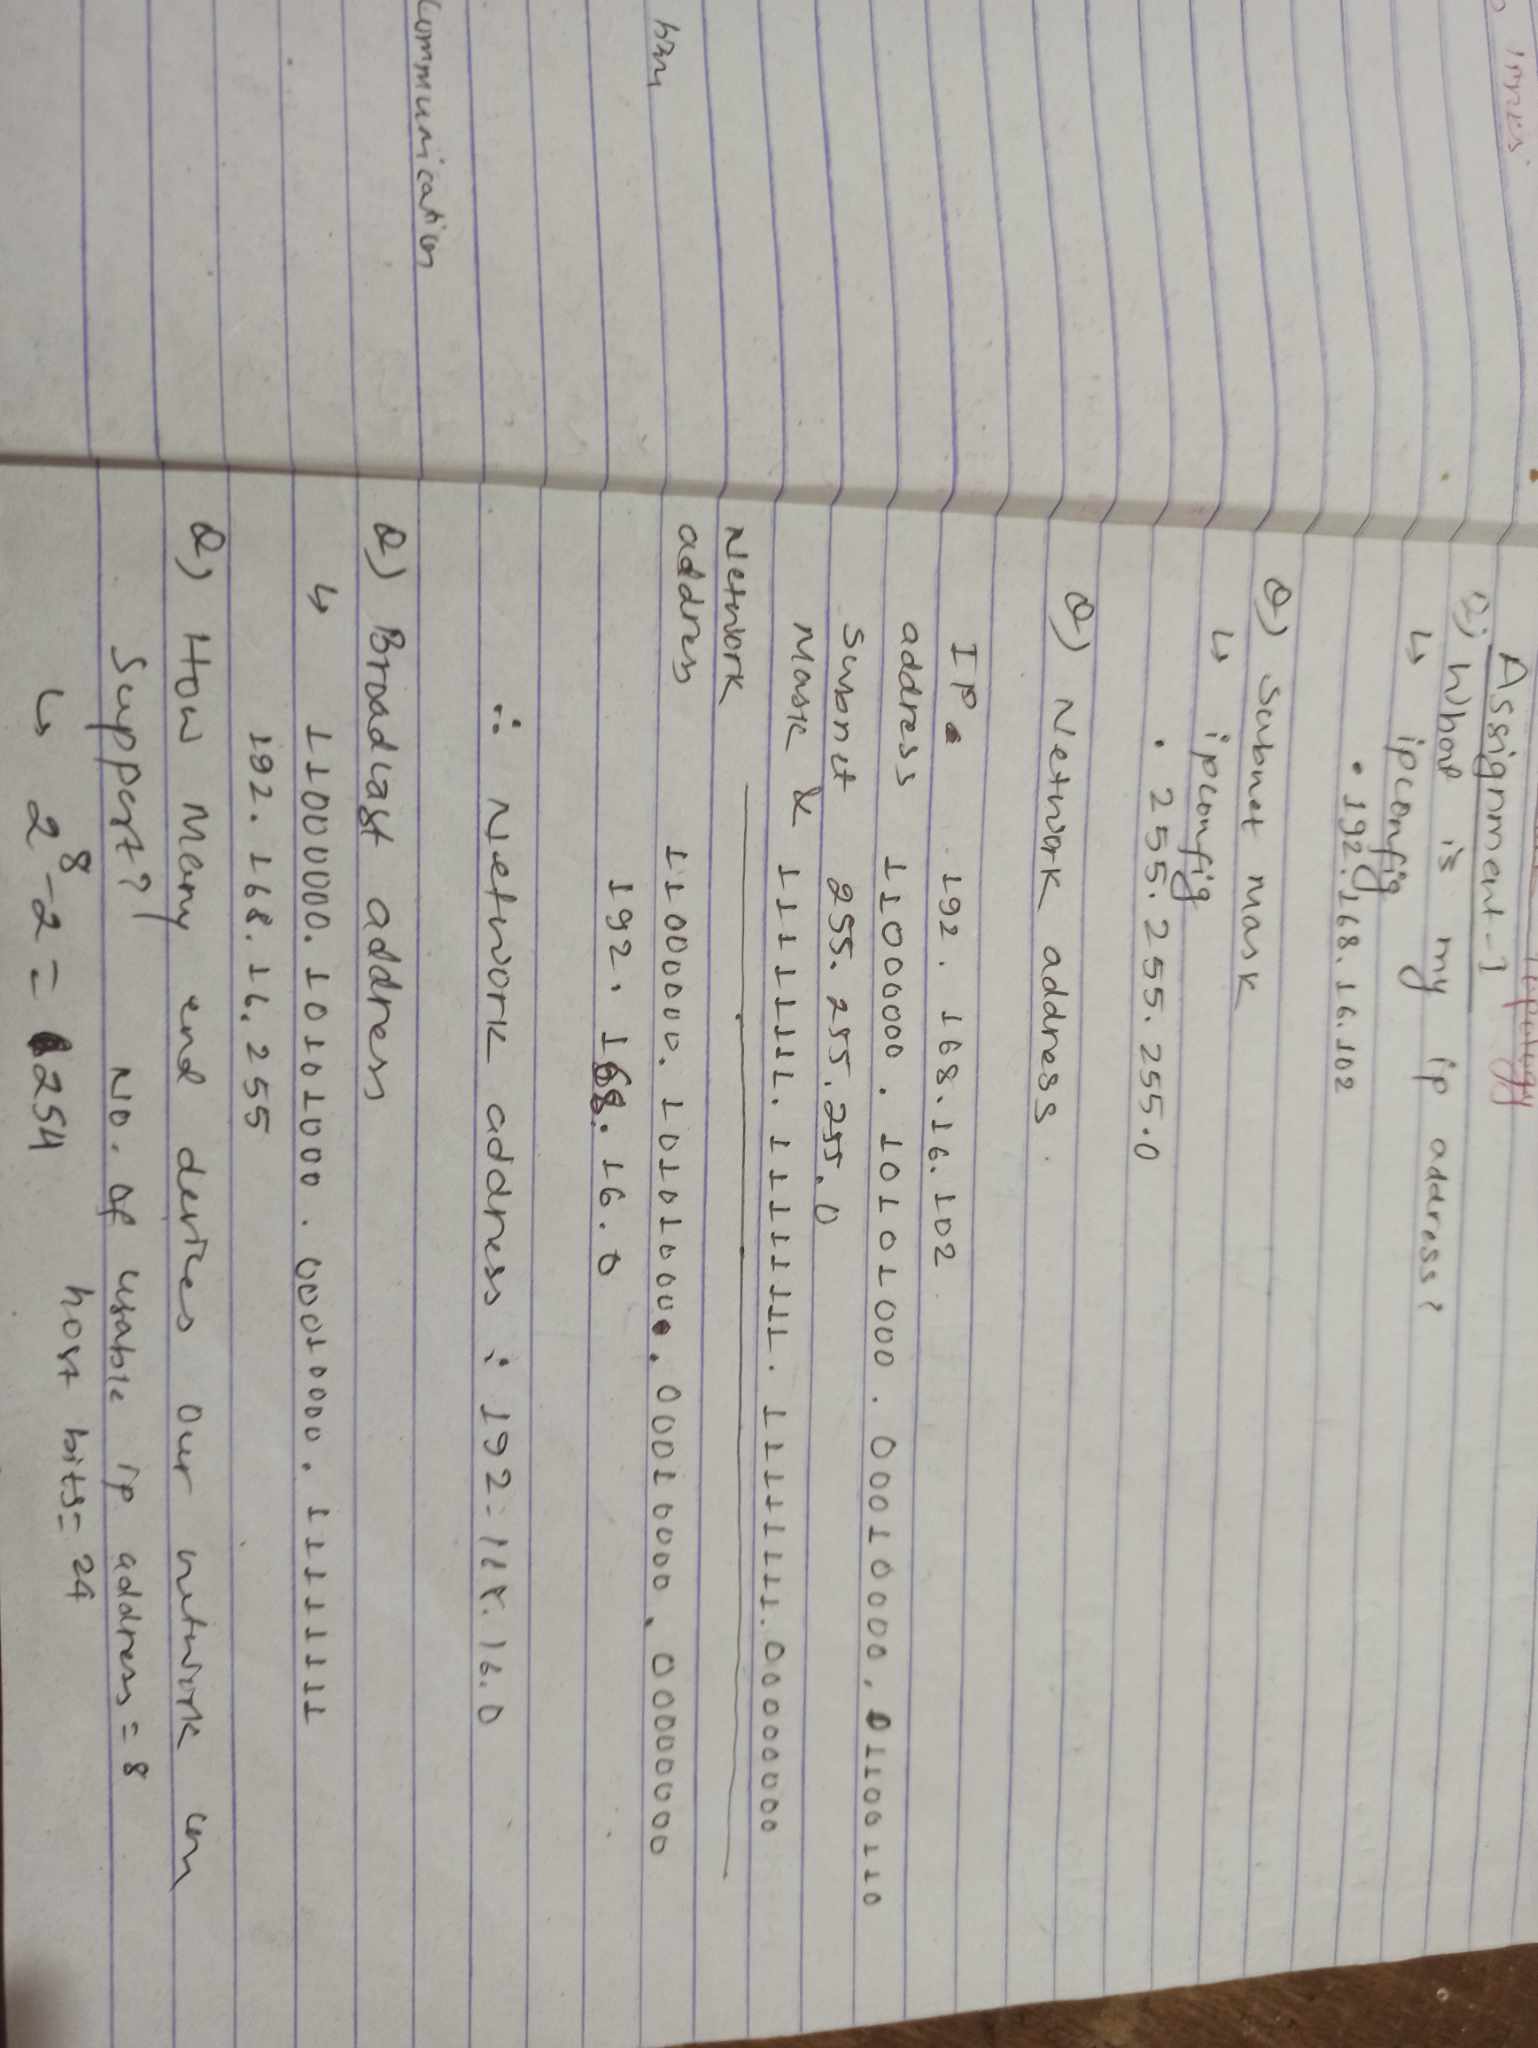 Assignment-1
Q) What is my ip address?
↳ ipconfig
• 192.168.16.102
Q) Subnet mask
↳ ipconfig
• 255.255.255.0
Q) Network address.
IP 192.168.16.102
address 11000000.10101000.00010000.01100110
Subnet 255.255.255.0
Mask & 11111111.11111111.11111111.00000000
Network
address 11000000.10101000.00010000.00000000
192.168.16.0
∴ Network address : 192.168.16.0
Q) Broadcast address
↳ 11000000.10101000.00010000.11111111
192.168.16.255
Q) How many end devices our network can
Support? No. of usable ip address = 8
host bits = 24
↳ 2⁸-2 = 254
communication